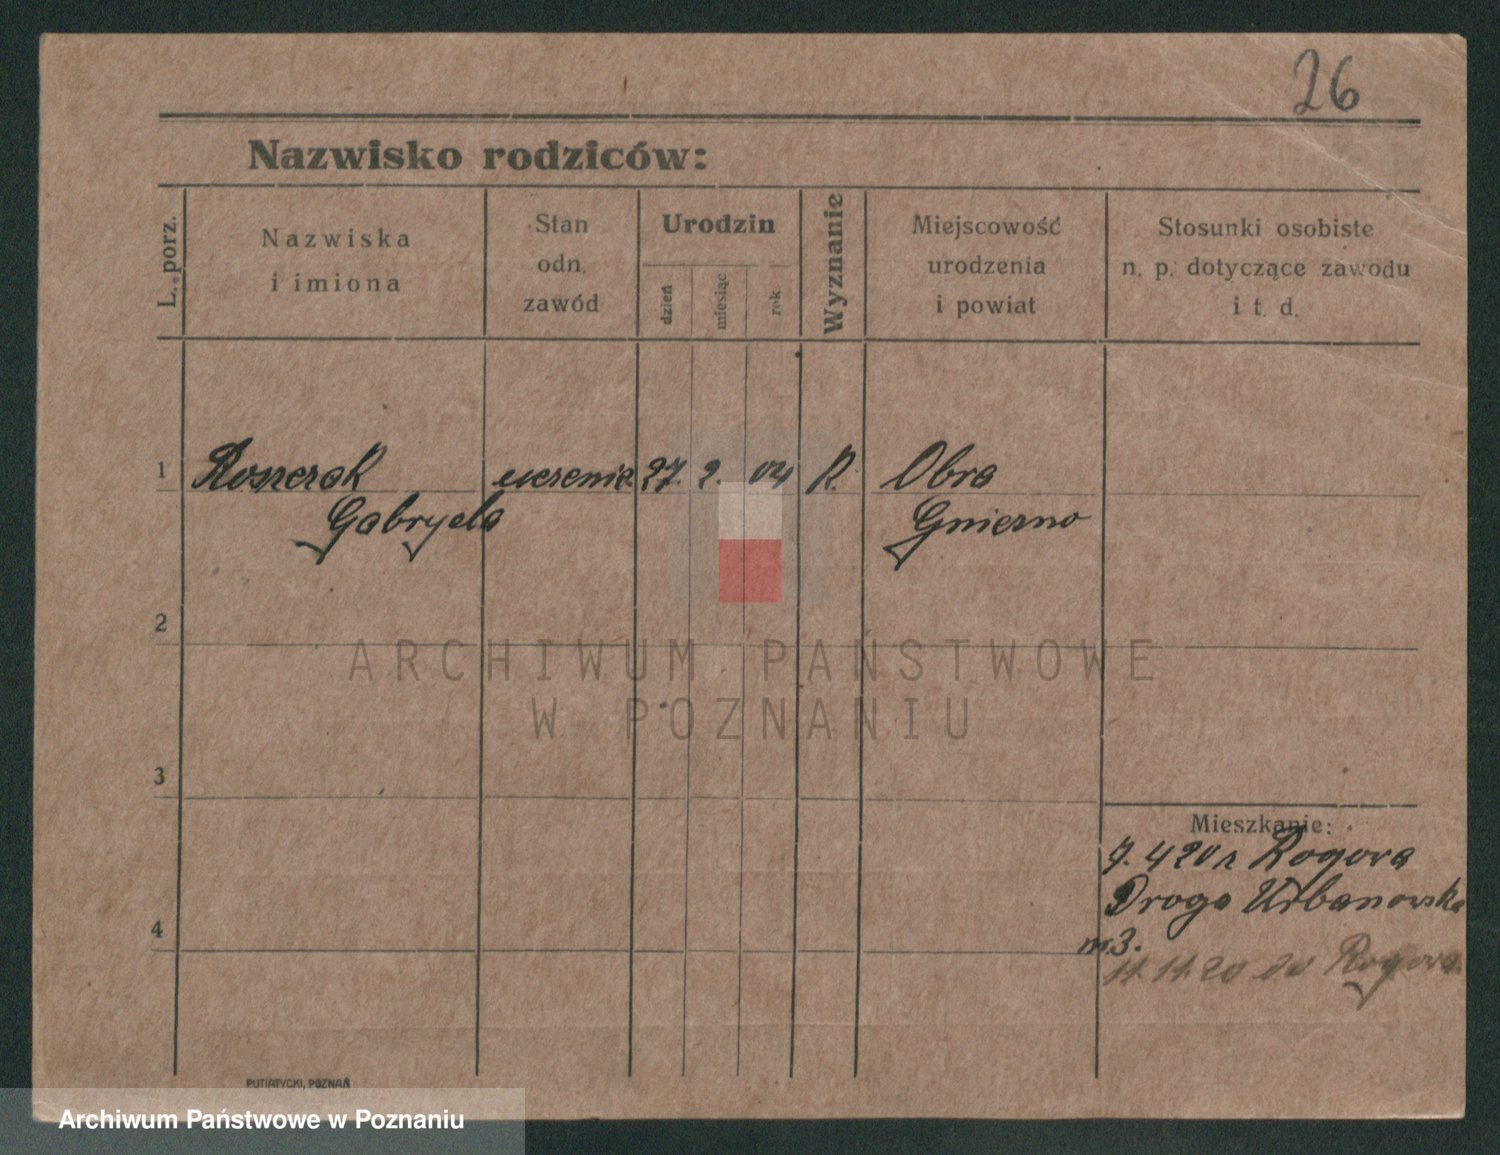 26
Nazwisko rodziców:
L. porz.
Nazwiska
i imiona
Stan
odn.
zawód
Urodzin
dzień
miesiąc
rok
Wyznanie
Miejscowość
urodzenia
i powiat
Stosunki osobiste
n. p. dotyczące zawodu
i t. d.
1 Roszczak uczenica 27. 2. 04 R. Obra
Gabryela Gniezno
2
ARCHIWUM PAŃSTWOWE
W POZNANIU
3
Mieszkanie:
7. 4 20 z Rogowa
Droga Urbanowska
4
m3.
11.11.20 do Rogowa
PUTIATYCKI, POZNAŃ
Archiwum Państwowe w Poznaniu